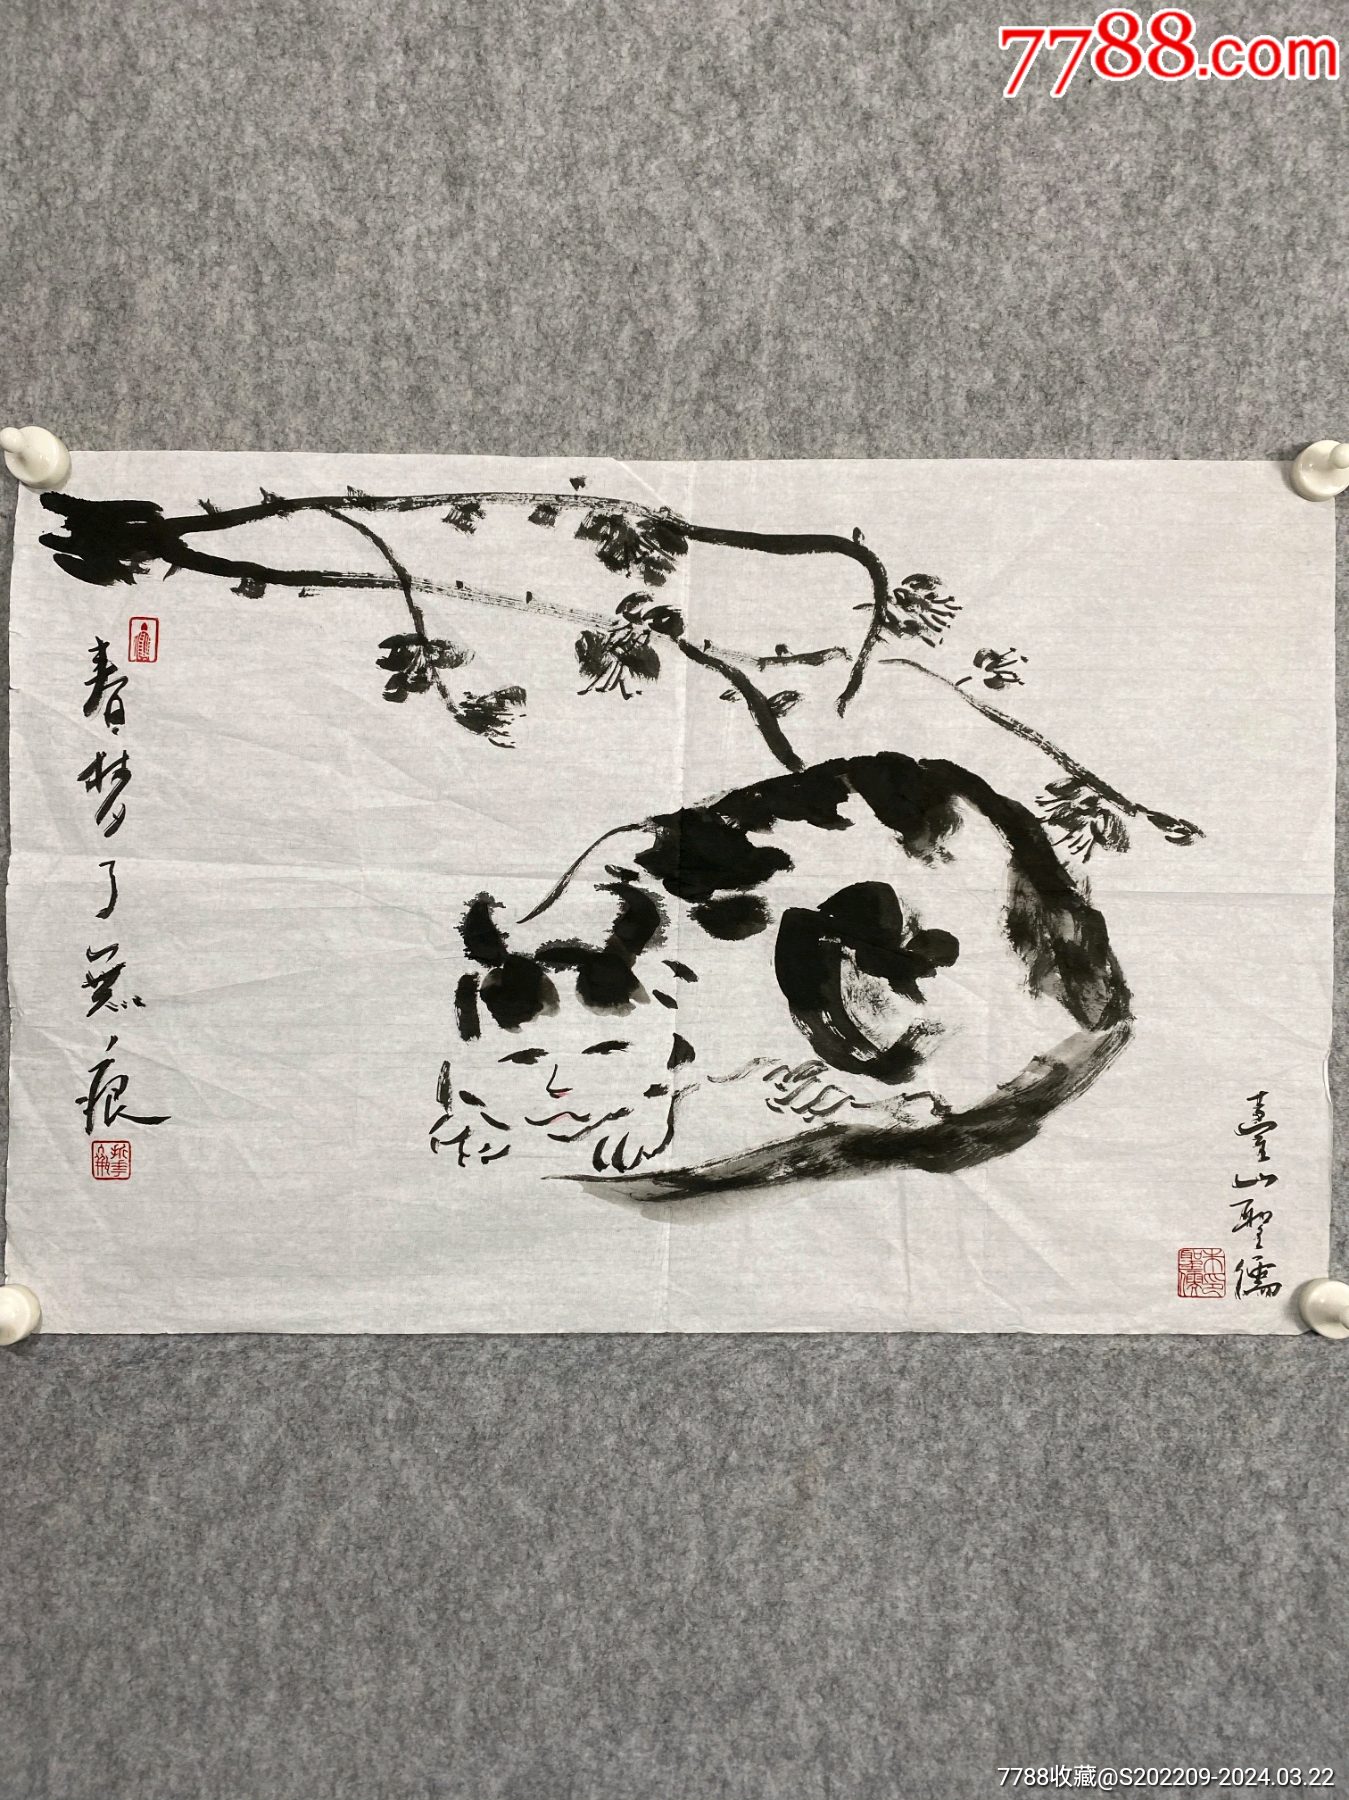 7788.com
春梦了无痕
臺山聖儒
7788收藏@S202209-2024.03.22